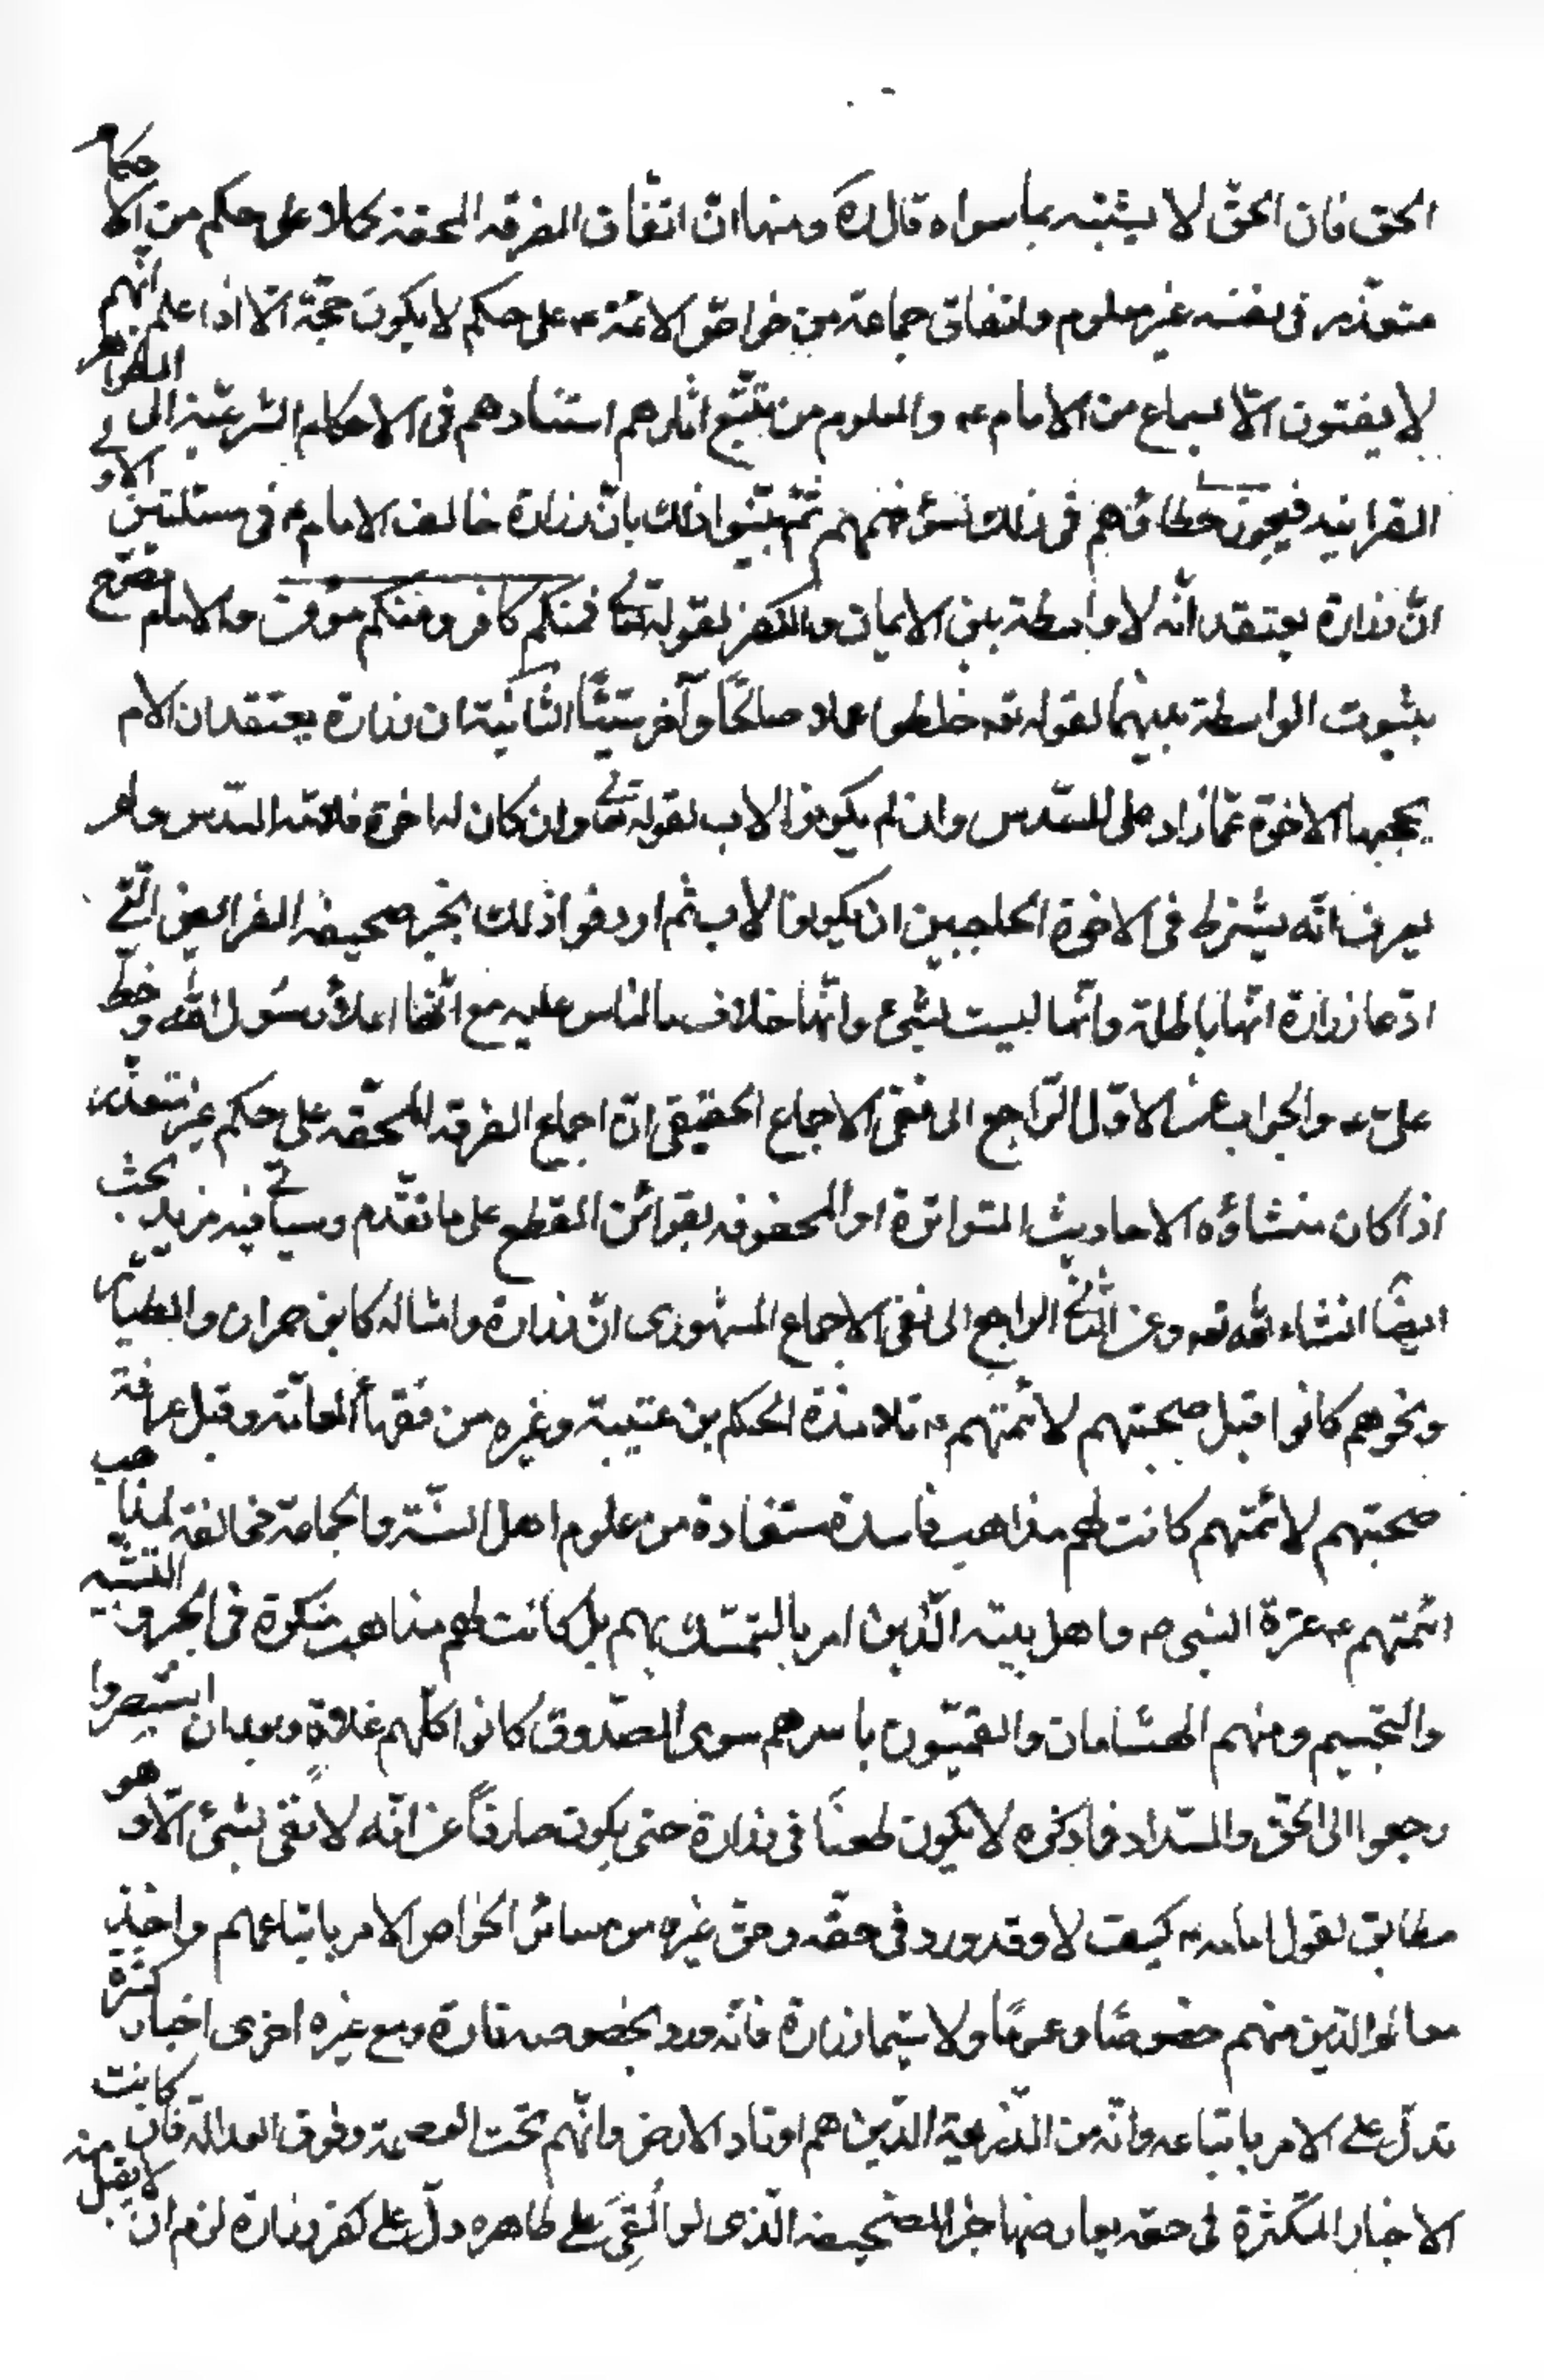 الحق فان الحقّ لا يشبّه بما سواه قال ره ومنها انّ اتفاق الفرقه المحقه كلا على حكم من الاحكام
متعذر فى نفسه غير معلوم واتفاق جماعة من خواصّ الائمّة ع على حكم لا يكون حجّة الّا اذا علم انّهم
لا يفتون الّا بسماع من الامام ع والمعلوم من تتبّع اثارهم استنادهم فى الاحكام الشرعيّة الى الظواهر
القرانيه فيجوز خطائهم فى ذلك لسؤ فهمهم ثمّ بيّنوا ذلك بانّ زرارة خالف الامام ع فى مسئلتين الاولى
انّ زرارة يعتقد انّه لا واسطة بين الايمان والكفر لقوله تعالى فمنكم كافر ومنكم مؤمن والامام ع صرّح
بثبوت الواسطة بينهما لقوله تعه خلطوا عملا صالحًا وآخر سيّئًا الثانية ان زرارة يعتقد ان الام
يحجبها الاخوة عمّا زاد على السّدس وان لم يكونوا لاب لقوله تعالى وان كان له اخوة فلامّه السّدس ولم
يعرف انّه يشترط فى الاخوة الحاجبين ان يكونوا لاب ثم اردفوا ذلك بخبر صحيفه الفرائض الّتى
ادّعا زرارة انّها باطلة وانّها ليست بشىء وانّها خلاف ما الناس عليه مع انّها املاء رسول الله وخطّ
علىّ ع والجواب عن الاوّل الرّاجع الى نفى الاجماع الحقيقى انّ اجماع الفرقه المحقّه على حكم غير متعذّر
اذا كان منشاؤه الاحاديث المتواترة او المحفوفه بقرائن القطع على ما تقدّم وسياتى فيه مزيد بحث
ايضًا انشاء الله تعه وعن الثانى الراجع الى نفى الاجماع المشهورى انّ زرارة وامثاله كابن حمران والطيّار
ونحوهم كانوا قبل صحبتهم لائمّتهم ع تلامذة الحكم بن عتيبة وغيره من فقهاء العامّة وقبل عرافة
صحبتهم لائمّتهم كانت لهم مذاهب فاسدة مستفادة من علوم اهل السّنّة والجماعة مخالفة لمذاهب
ائمّتهم ع عترة النبى ص واهل بيته الّذين امر بالتمسّك بهم بل كانت لهم مذاهب منكرة فى الجبر والتشبيه
والتجسيم ومنهم الهشامان والقمّيّون باسرهم سوى الصّدوق كانوا كلّهم غلاة وبعد ان استبصروا
رجعوا الى الحقّ والسّداد فما ذكره لا يكون طعنًا فى زرارة حتى يكون صارفًا عن انّه لا يفتى بشىء الّا وهو
مطابق لقول امامه ع كيف لا وقد ورد فى حقّه وحقّ غيره من سائر الخواص الامر باتباعهم واخذ
معالم الدّين منهم خصوصًا وعمومًا ولا سيّما زرارة فانّه ورد بخصوصه تارة ومع غيره اخرى اخبار كثيرة
تدلّ على الامر باتباعه وانّه من الّذين هم اوتاد الارض وانّهم تحت العصمة وفوق العدالة فان كانت
الاخبار المتكثّرة فى حقه يعارضها خبر الصّحيفه الّذى لو اُلقِىَ على ظاهره دلّ على كفر زرارة لزم ان لا يقبل منه